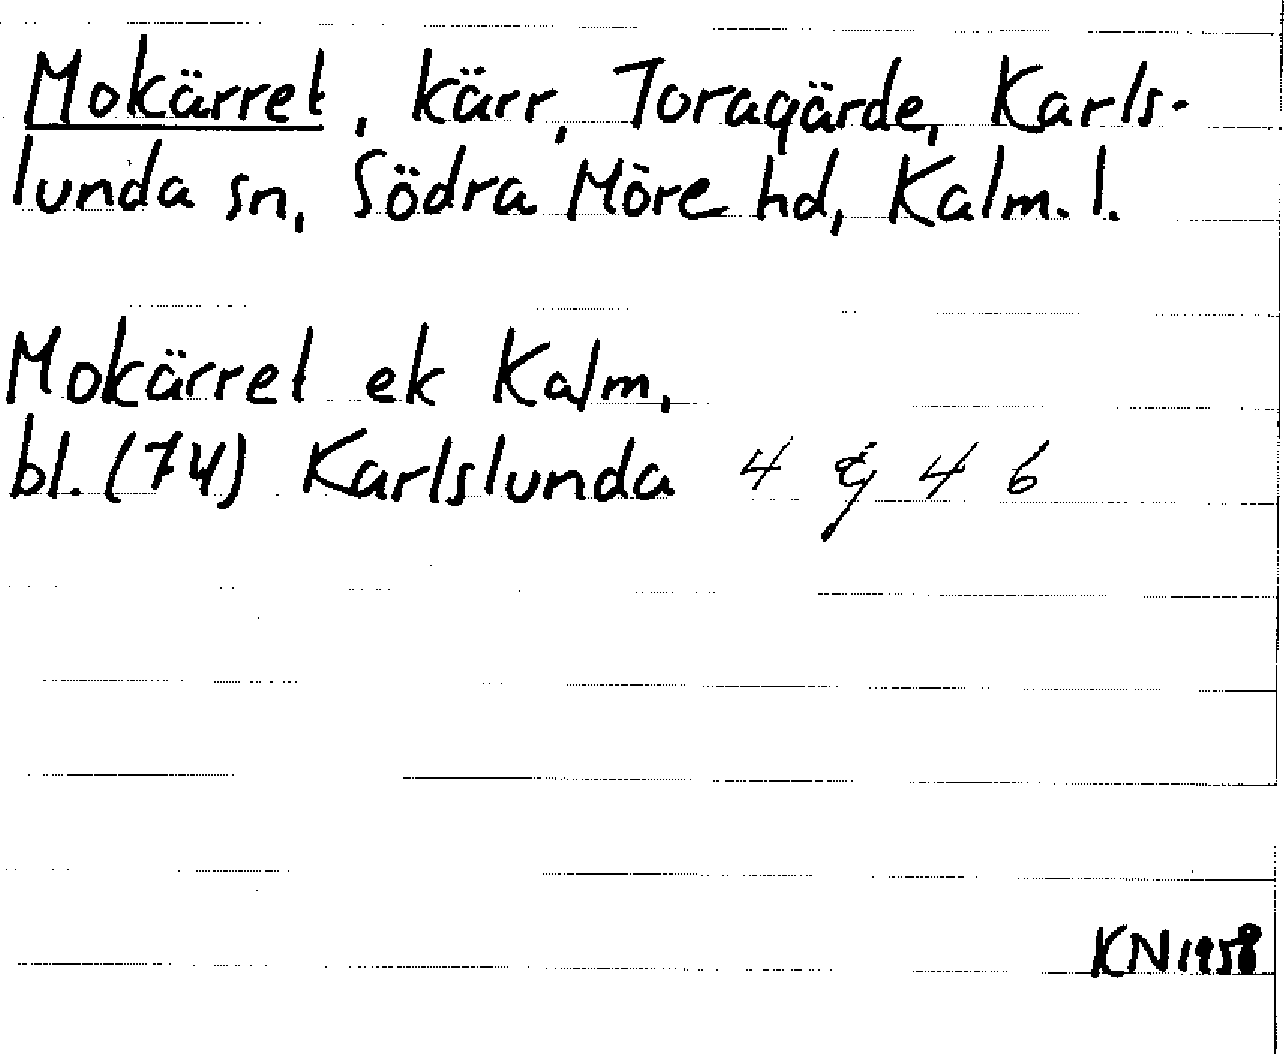 Mokärret, kärr, Toragärde, Karls-
lunda sn, Södra Möre hd, Kalm. l.
Mokärret ek Kalm,
bl. (74) Karlslunda 4 g 4 6
KN 1958